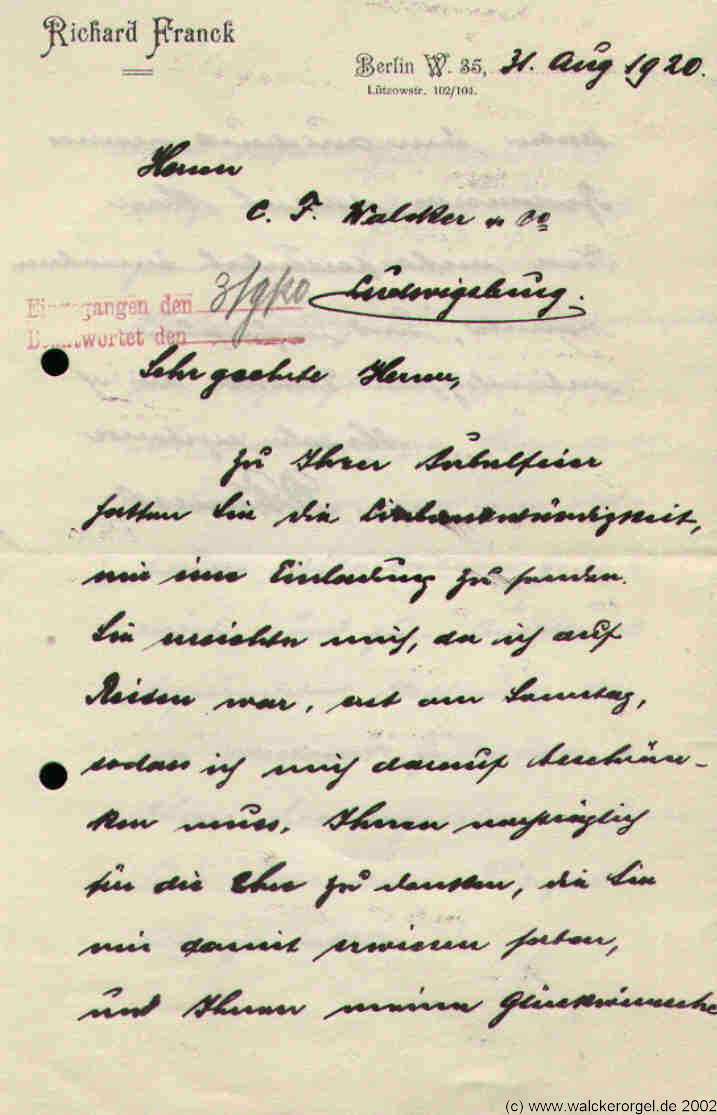 Richard Franck
Berlin W. 35, 31. Aug 1920.
Lützowstr. 102/104.
Herren
E. F. Walcker & Co
Ludwigsburg.
Eingegangen den 3/9/20
Beantwortet den
Sehr geehrte Herren,
zu Ihrer Jubelfeier
hatten Sie die Liebenswürdigkeit,
mir eine Einladung zu senden.
Sie erreichte mich, da ich auf
Reisen war, erst am Samstag,
sodass ich mich darauf beschrän-
ken muss, Ihnen nachträglich
für die Ehre zu danken, die Sie
mir damit erwiesen haben,
und Ihnen meine Glückwünsche
(c) www.walckerorgel.de 2002